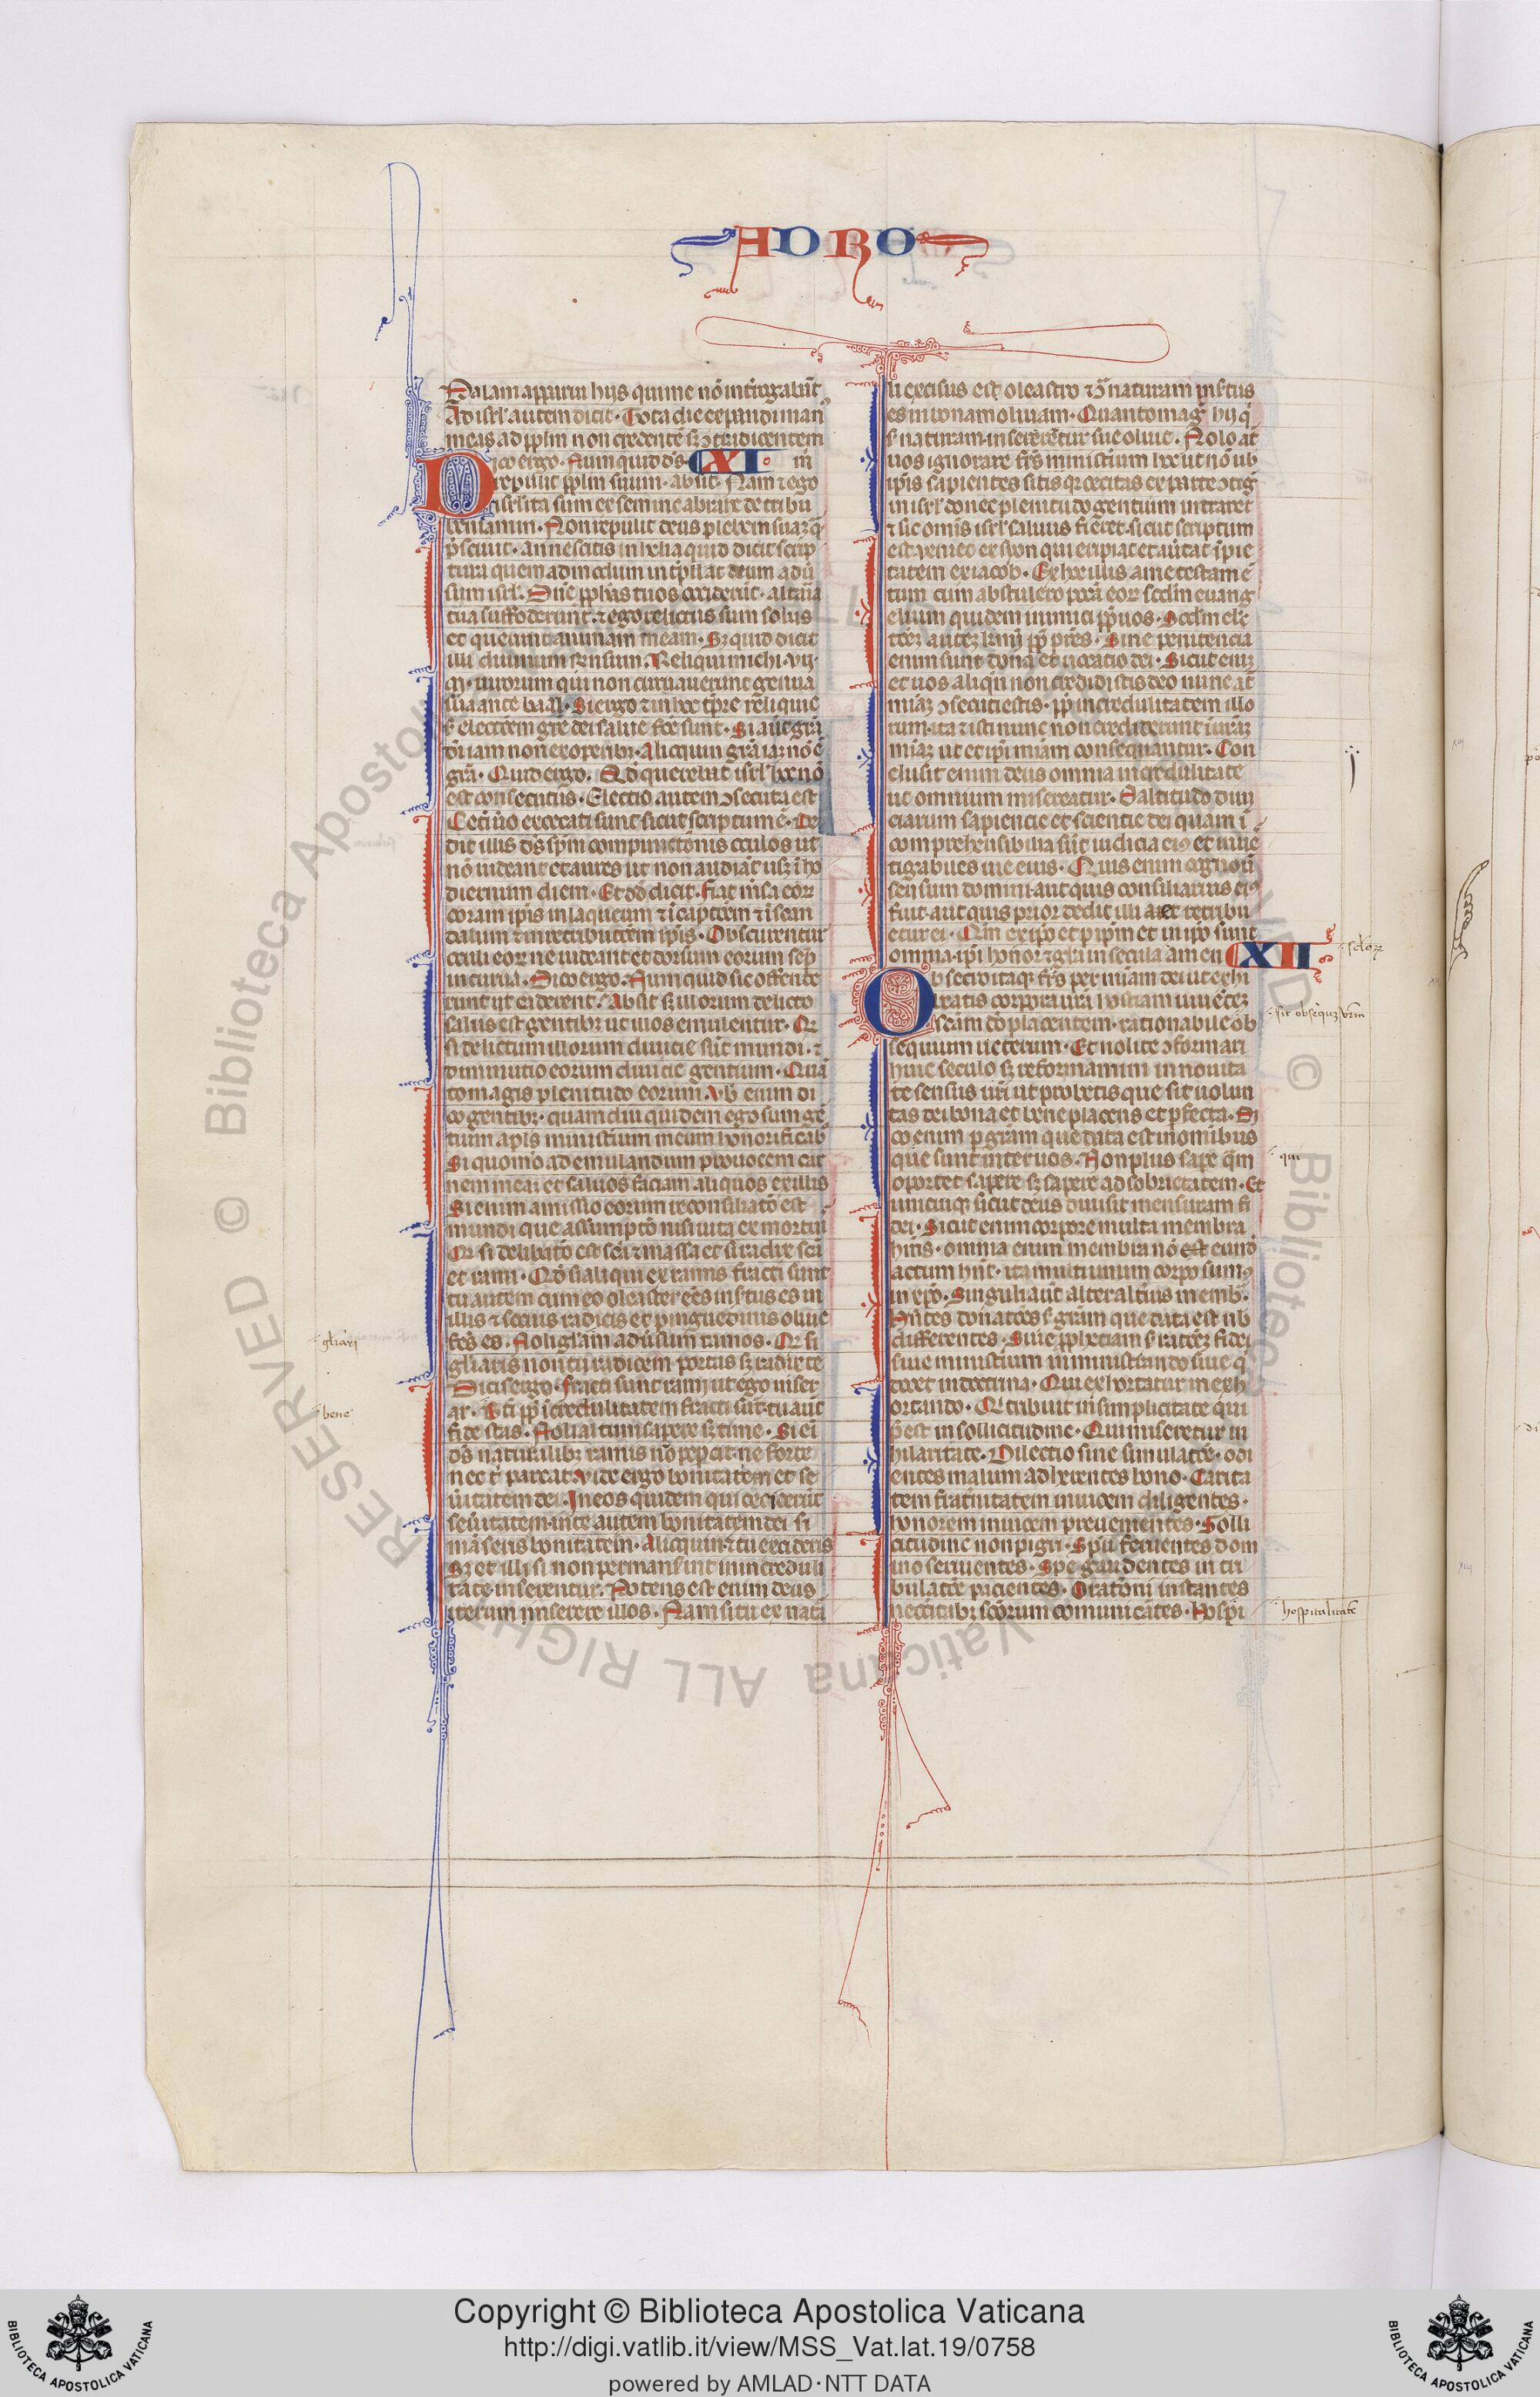 AD RO
Palam apparui hijs qui me nō int̄rogabāt
Ad isrł autem dicit · Tota die expandi man
meas ad pp̄lm non credentē sꝫ ꝯtradicentem
Dico ergo · Num quid dn̄s CXI
repulit pp̄lm suum · absit · Nam ⁊ ego
israelita sum ex semine abrahe de tribu
beniamin · Non repulit deus plebem suā q̄
p̄sciuit · an nescitis in helia quid dicit scrip
tura quem admodum int̄pellat deum adū
sum isrł · Dn̄e pp̄has tuos occiderūt · altaria
tua suffoderunt · ⁊ ego relictus sum solus
et querunt animam meam · Sꝫ quid dicit
illi diuinum responsum · Reliqui michi · vij ·
m̄ · uirorum qui non curuauerunt genua
sua ante baal · Si ergo ⁊ in hoc tp̄re reliquie
s̄ electōem gr̄e dei salue fc̄e sunt · Si aut̄ gr̄a
iam non ex operibꝫ · Alioquin gr̄a iam nō ē
gr̄a · Quid ergo · Qd̄ querebat isrł hoc nō
est consecutus · Electio autem ꝯsecuta est
Cet̄i ūo excecati sunt sicut scriptum ē · De
dit illis ds̄ sp̄m compunctōnis oculos ut
nō uideant et aures ut non audiāt usqꝫ ī ho
diernum diem · Et dd̄ dicit · Fiat mēsa eoꝝ
coram ip̄is in laqueum ⁊ ī captōem ⁊ ī scan
dalum ⁊ in retributōem ip̄is · Obscurentur
oculi eoꝝ ne uideant et dorsum eorum semp̄
incurua · Dico ergo · Num quid sic offende
runt ut caderent · Absit sꝫ illorum delicto
salus est gentibꝫ ut illos emulentur · Qr̄
si delictum illorum diuicie sūt mundi · ⁊
diminutio eorum diuicie gentium · Quā
to magis plenitudo eorum · Vob̄ enim di
co gentibꝫ · quam diu quidem ego sum gē
tium apl̄s minist̄ium meum honorificabo
Si quomō ad emulandum prouocem car
nem meā et saluos faciam aliquos ex illis
Si enim amissio eorum reconsiliatō est
mundi que assumptō nisi uita ex mortuis
Qr̄ si delibatō est sc̄a ⁊ massa et si radix sc̄a
et rami · Qd̄ si aliqui ex ramis fracti sunt
tu autem cum eo oleaster eēs insertus es in
illis ⁊ socius radicis et pinguedinis oliue
fc̄s es · Noli gl̄iam adūsum ramos · Qr̄ si
gl̄iaris non tu radicem portas sꝫ radix te
Dicis ergo · Fracti sunt rami ut ego inser
ar · pp̄ īcredulitatem fracti sūt · tu aut̄
fide stas · Noli altum sapere sꝫ time · Si eī
ds̄ naturalibꝫ ramis nō pepcit · ne forte
nec t̄ parcat · Vide ergo bonitatem et se
ūitatem dei · In eos quidem qui ceciderūt
seūitatem · in te autem bonitatem dei si
māseris bonitatem · Alioquin · ⁊ tu excideris
Sꝫ et illi si non permanserint in incréduli
tate inserentur · Potens est enim deus
iterum inserere illos · Nam si tu ex nat̄a
li excisus est oleastro ⁊ ꝯ naturam insertus
es in bonam oliuam · Quanto maḡ hij q̄
s̄ naturam inserentur sue oliue · Nolo at
uos ignorare fr̄s minist̄ium hoc ut nō ub
ip̄is sapientes sitis qꝫ cecitas ex parte ꝯtig
in isrł donec plenitudo gentium intraret
⁊ sic omīs isrł saluus fieret · sicut scriptum
est · Veniet ex syon qui eripiat et aūtat īpie
tatem ex iacob · Et hoc illis a me testamē
tum cum abstulero pccā eoꝝ · Scd̄m euang
elium quidem inimici pp̄ uos · Scd̄m elec
tōeꝫ auteꝫ krmj pp̄ pr̄es · Sine penitencia
enim sunt dona et uocatio dei · Sicut enim
et uos aliqn̄ non credidistis deo nunc at
miāꝫ ꝯsecuti estis · pp̄ incredulitatem illo
rum · ita ⁊ isti nunc non crediderunt ī ur̄āꝫ
miāꝫ ut et ip̄i miām consequantur · Con
clusit enim deus omnia in credulitate
ut omnium misereatur · O altitudo diui
ciarum sapiencie et sciencie dei quam ī
comprehensibilia sūt iudicia eiꝰ et inue
tigabiles uie eius · Quis enim cognouit
sensum domini · aut quis consiliarius eiꝰ
fuit · aut quis prior dedit illi a et retribu
etur ei · Qm̄ ex ip̄o et p̄ ip̄m et in ip̄o sunt
omnia · ip̄i honor ⁊ gl̄ia in secula amen CXII
Obsecro itaqꝫ fr̄s per miām dei ut exhi
beatis corpora ur̄a hostiam uiuēteꝫ
sc̄am dō placentem · rationabile ob
sequium uestrum · Et nolite ꝯformari
huic seculo sꝫ reformamini in nouita
te sensus ur̄i ut probetis que sit uolun
tas dei bona et beneplacens et p̄fecta · Di
co enim p̄ gr̄am que data est m̄ omībus
que sunt inter uos · Non plus sape q̄m
oportet sapere sꝫ sapere ad sobrietatem · Et
unicuiqꝫ sicut deus diuisit mensuram fi
dei · Sicut enim corpore multa membra
hm̄s · omnia enim membra nō eund
actum hn̄t · ita multi unum corpꝰ sumꝰ
in xp̄o · Singuli aut̄ alter altiꝰ memb̄ ·
Hn̄tes donatōes s̄ gr̄am que data est ub
differentes · Siue pp̄hetiam s̄ ratōeꝫ fidei
siue minist̄ium in ministrando siue q̄
docet in doctrina · Qui exhortatur in exh
ortando · Qr̄ tribuit in simplicitate qui
p̄est in sollicitudine · Qui miseretur in
hilaritate · Dilectio sine simulatōe · odi
entes malum adherentes bono · Carita
tem frat̄nitatem inuicem diligentes ·
honorem inuicem preuenientes · Solli
citudine non pigri · Spū feruentes dom
ino seruientes · Spe gaudentes in tri
bulatōe pacientes · Oratōni instantes
necc̄itatibꝫ scōrum cōmunicātes · Hospi
gl̄iari
bene
sc̄loꝝ
sit obseq̄uꝫ vr̄m
qui
hospitalitatē
Copyright © Biblioteca Apostolica Vaticana
http://digi.vatlib.it/view/MSS_Vat.lat.19/0758
powered by AMLAD·NTT DATA
BIBLIOTECA APOSTOLICA VATICANA
BIBLIOTECA APOSTOLICA VATICANA